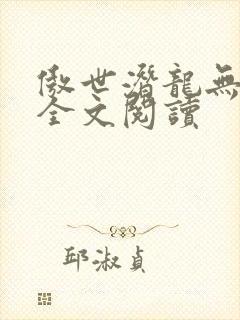 傲世潛龍無
全文閱讀
邱淑貞